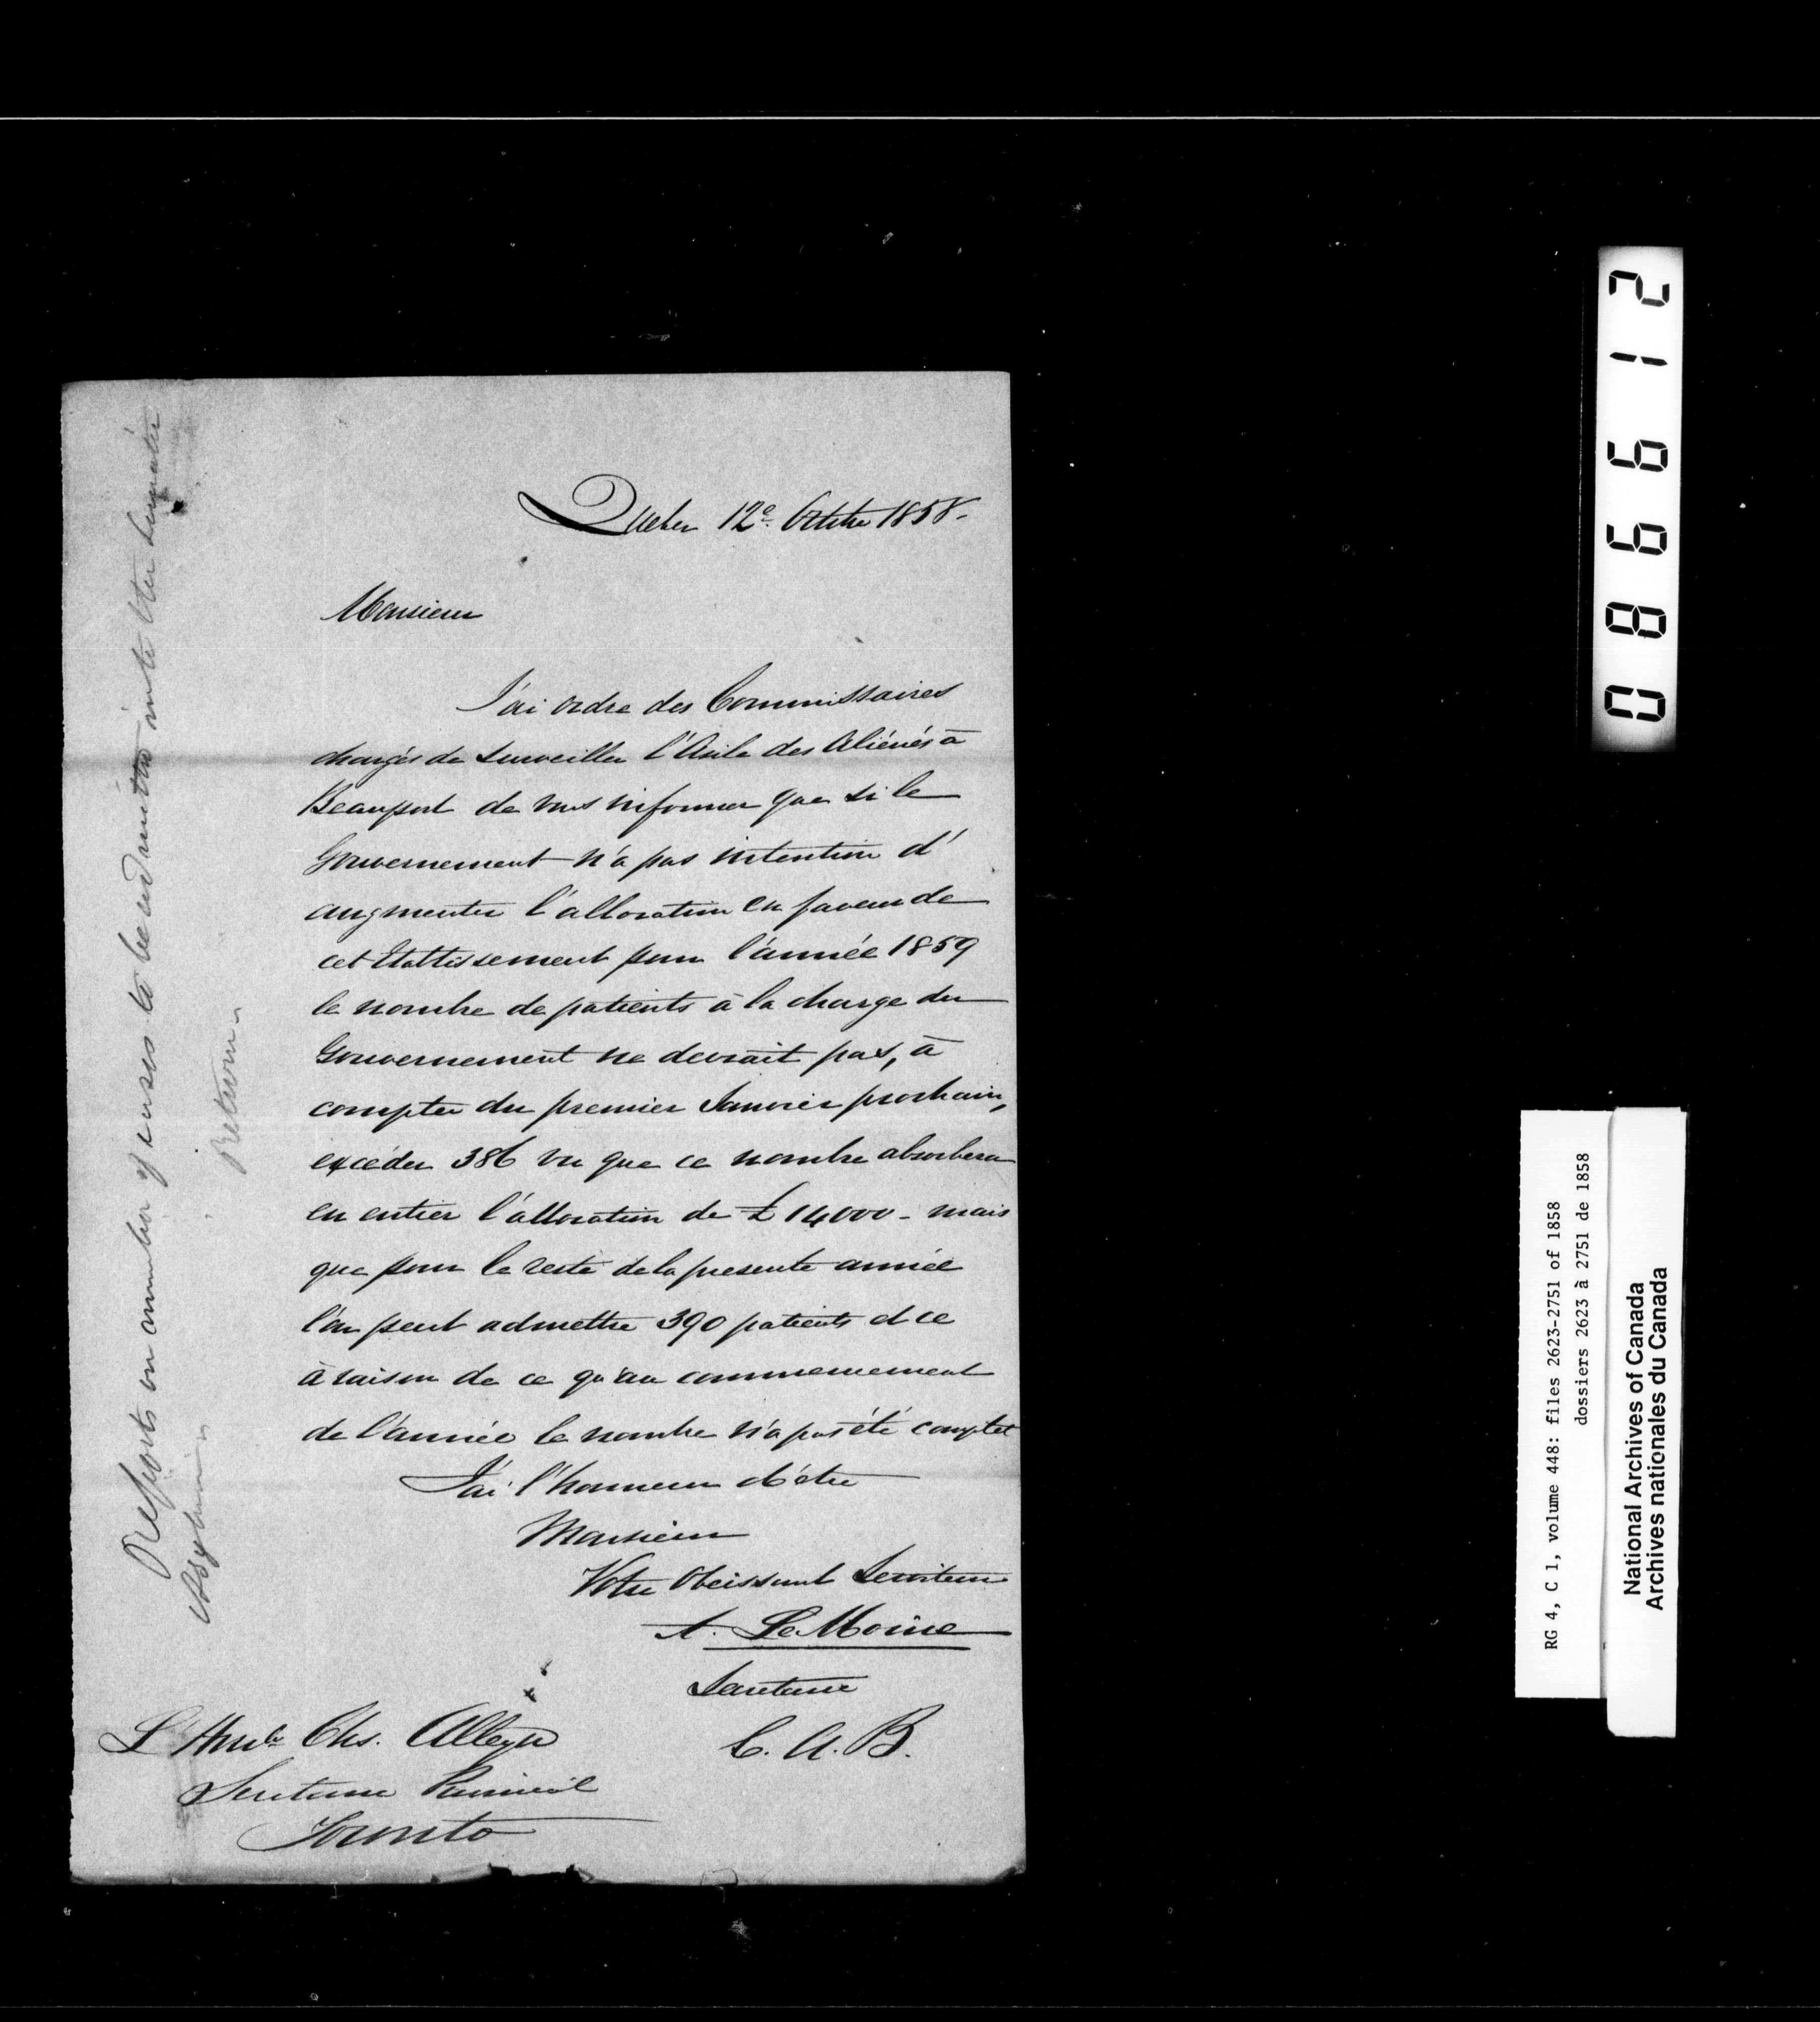 Quebec 12e. Octobre 1858.
Monsieur
J'ai ordre des Commissaires
chargés de surveiller l'Asile des Aliénés à
Beauport de vous informer que si le
Gouvernement n'a pas intention d'
augmenter l'allocation en faveur de
cet Etablissement pour l'année 1859
le nombre de patients à la charge du
Gouvernement ne devrait pas, à
compter du premier Janvier prochain,
excéder 386 vu que ce nombre absorbera
en entier l'allocation de £14000 - mais
que pour le reste de la presente année
l'on peut admettre 390 patients et ce
à raison de ce qu'au commencement
de l'année le nombre n'a pas été complet
J'ai l'honneur d'être
Monsieur
Votre Obeissant Serviteur
A. LeMoine
Secretaire
C. A. B.
L'Honble Chs. Alleyn
Secretaire Provincial
Toronto
Reports on number of cases to be admitted into the Lunatic
Asylum
Return
086612
RG 4, C 1, volume 448: files 2623-2751 of 1858
dossiers 2623 à 2751 de 1858
National Archives of Canada
Archives nationales du Canada